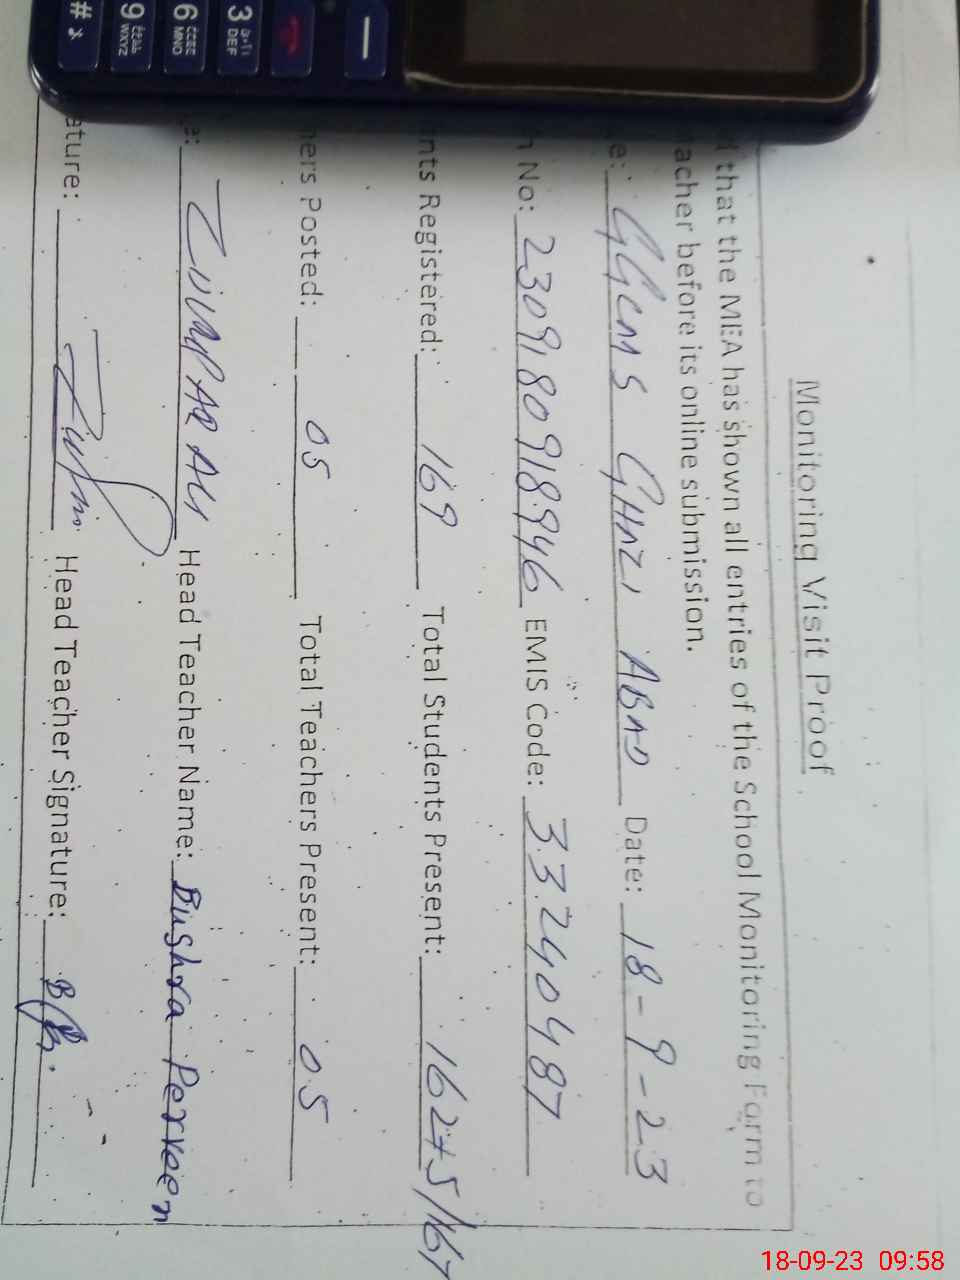 Monitoring Visit Proof
that the MEA has shown all entries of the School Monitoring Form to
acher before its online submission.
e: GGCMS GHAZI ABAD Date: 18-9-23
n No: 2309180918946 EMIS Code: 33240487
nts Registered: 169 Total Students Present: 162+5/167
ners Posted: 05 Total Teachers Present: 05
e: ZULFAQAR ALI Head Teacher Name: Bushra Perveen
ature: Head Teacher Signature:
3 DEF
6 MNO
9 WXYZ
#
18-09-23 09:58